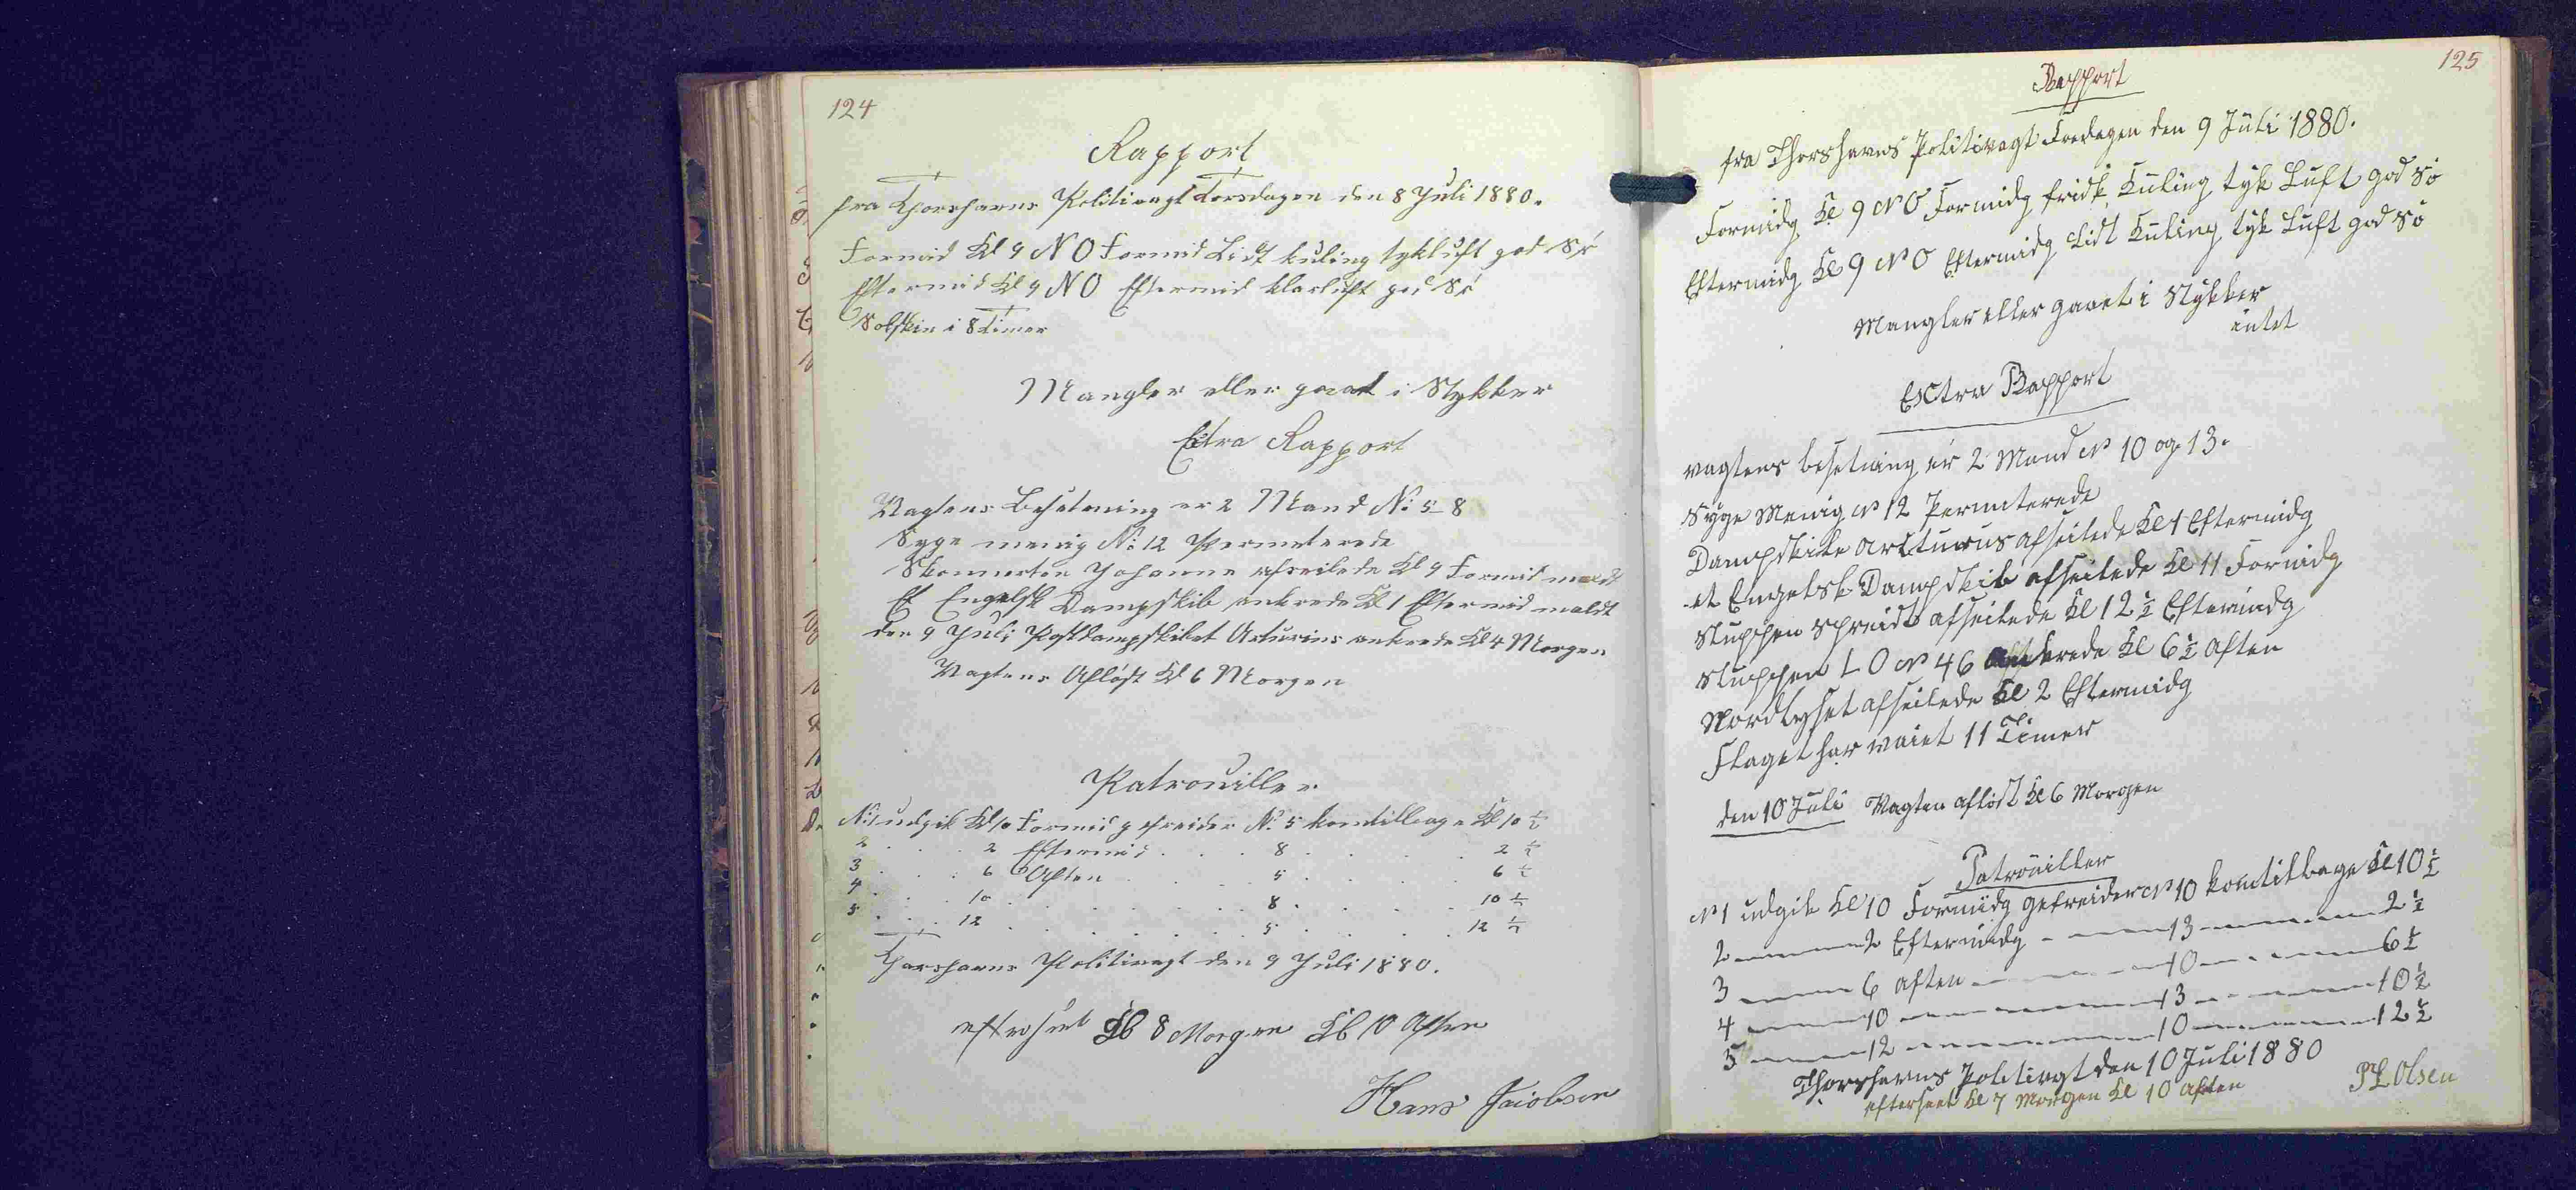 124
Rapport
fra Thorshavns Politivagt Torsdagen den 8 Juli 1880.
Formid Kl 9 NO Formid Lidt kuling tykluft god Sö
Eftermid Kl 9 NO Eftermid klarluft god Sö
Solskin i 8 Timer
Mangler eller gaaet i Stykker
Extra Rapport
Vagtens Besetening er 2 Mand No 5-8
Syge menig No 12 Permeterede
Skonnerten Johanne afseilede Kl 9 Formid meldt
Et Engelsk Dampskib ankrede Kl 1 Eftermid meldt
den 9 Juli Postdampskibet Arturius ankrede Kl 4 Morgen
Vagtens Aflöst Kl 6 Morgen
Patrouiller
No 1 udgik Kl 10 Formid gefreider No 5 komtilbage Kl 10 ½
2 . . . . 2 Eftermid . . . 8 . . . . 2 ½
3 . . . 6 Aften . . . . 5 . . . . 6 ½
4 . . . 10 . . . . . . 8 . . . . 10 ½
5 . . . 12 . . . . . . 5 . . . . 12 ½
Thorshavns Politivagt den 9 Juli 1880.
efterseet Kl 8 Morgen Kl 10 Aften
Hans Jacobsen
125
Rapport
fra Thorshavns Politivagt Fredagen den 9 Juli 1880.
Formidg Kl 9 NO Formidg friðsk Kuling tyk Luft god Sö
Eftermidg Kl 9 NO Eftermidg Lidt Kuling tyk Luft god Sö
Mangler eller gaaet i Stykker
intet
Extra Rapport
vagtens besetning er 2 Mand No 10 og 13.
Syge Menig No 12 Permiterede
Dampskibe Arcturus afseilede Kl 1 Eftermidg
et Engelsk Dampskib afseilede Kl 11 Formidg
Sluppen Spreidt afseilede Kl 12 ½ Eftermidg
Sluppen L O No 46 Ankrede Kl 6 ½ Aften
Nordlyset afseilede Kl 2 Eftermidg
Flaget har vaiet 11 Timer
den 10 Juli Vagten aflöst Kl 6 Morgen
Patrouiller
No 1 udgik Kl 10 Formidg gefreider No 10 komtilbage Kl 10 ½
2 ---- 2 Eftermidg ---- 13 ---- 2 ½
3 ---- 6 Aften ---- 10 ---- 6 ½
4 ---- 10 ---- 13 ---- 10 ½
5 ---- 12 ---- 10 ---- 12 ½
Thorshavns Politivagt den 10 Juli 1880
efterseet Kl 7 Morgen Kl 10 Aften
PL Olsen